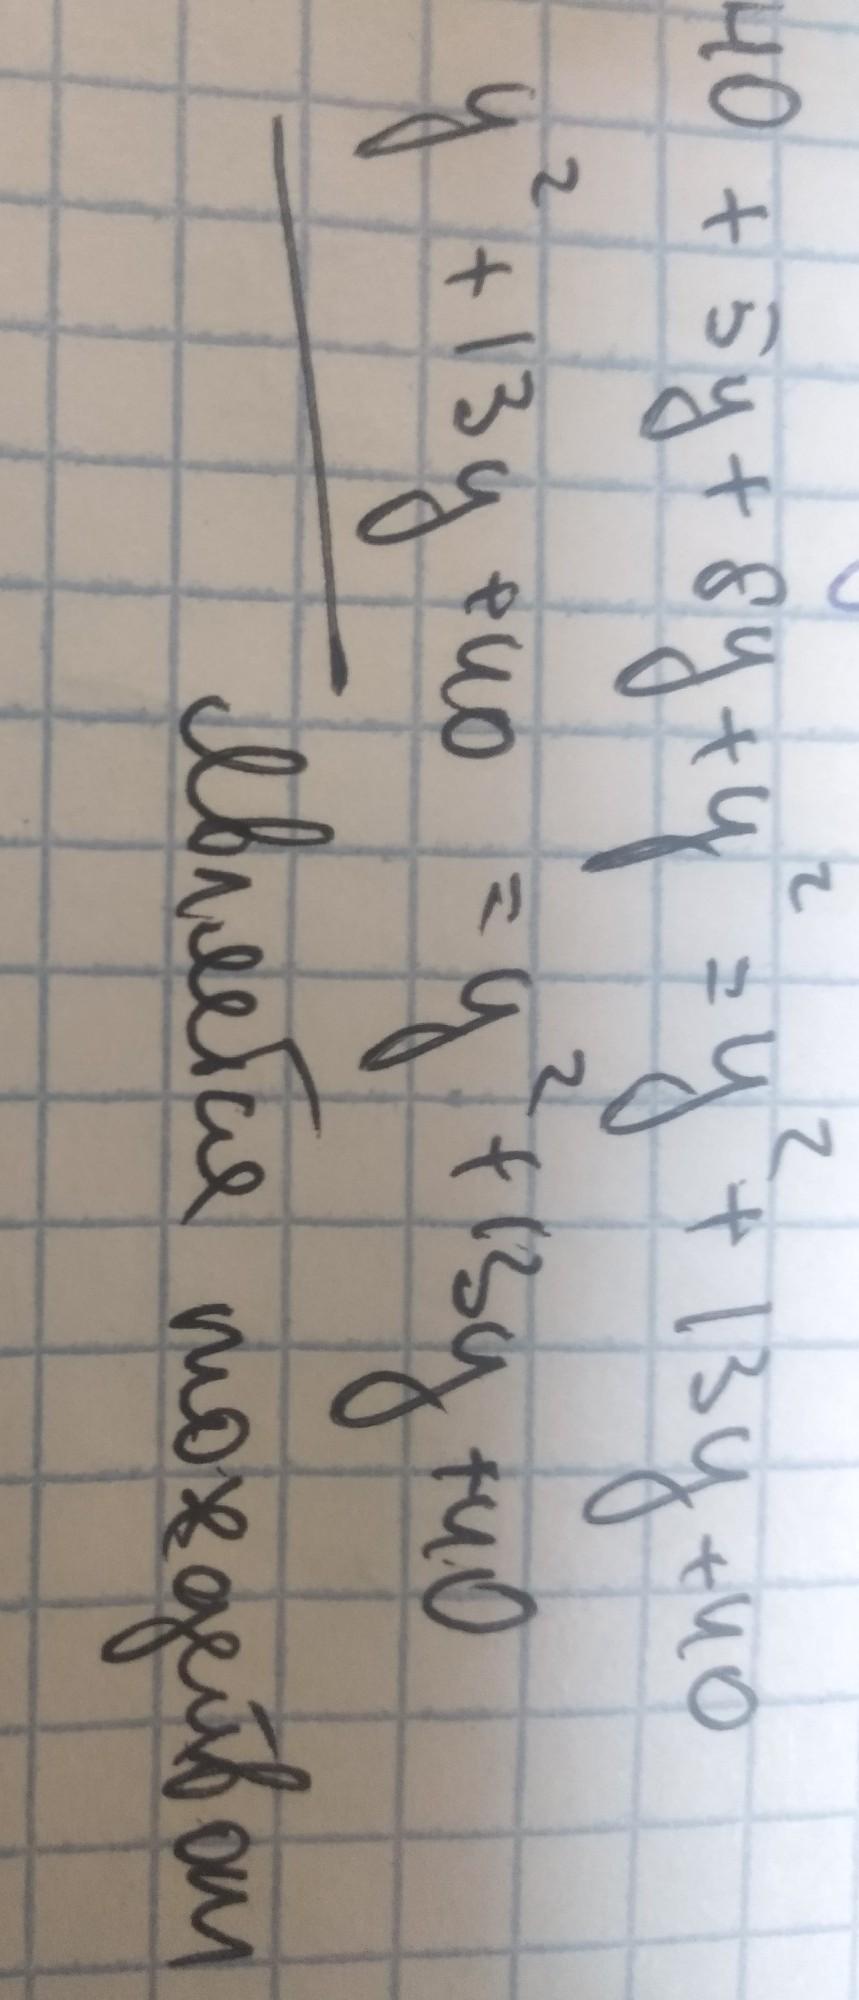 40 + 5y + 8y + y² = y² + 13y + 40
y² + 13y + 40 = y² + 13y + 40
Является тождеством